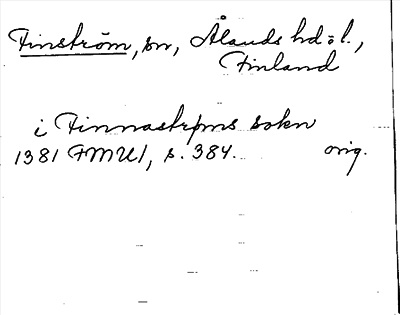 Finström, sn, Ålands hd o l.,
Finland
i Finnastrøms sokn
1381 FMU 1, s. 384. orig.